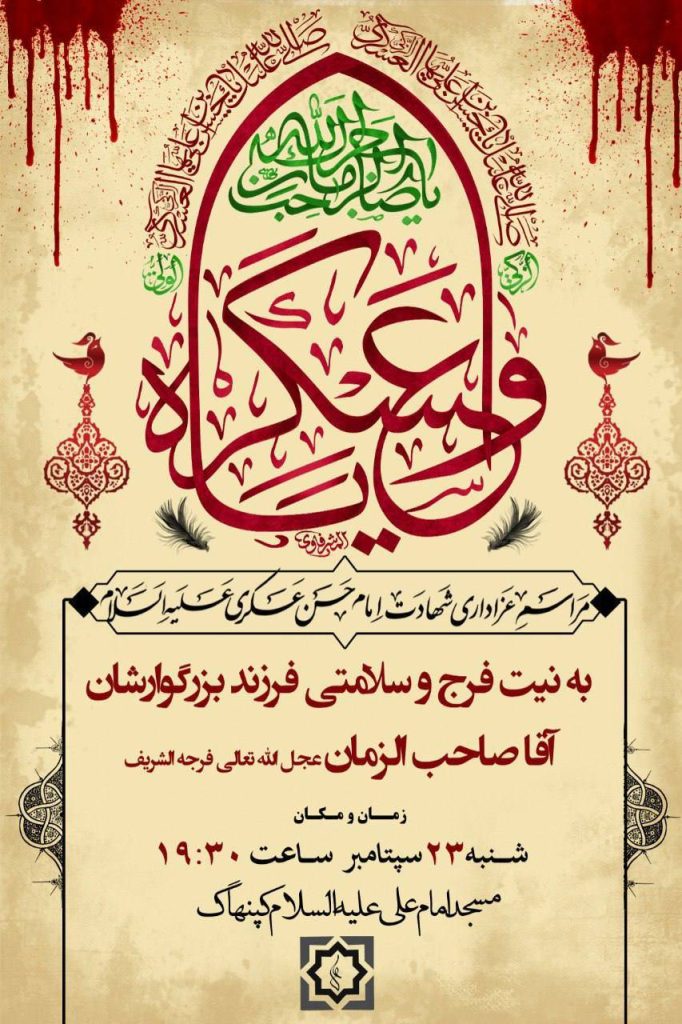 صلی الله علیک یا حسن بن علی العسکری
صلی الله علیک یا حسن بن علی العسکری
یا صاحب الزمان
أدرکنی
وا عسکراه
مراسم عزاداری شهادت امام حسن عسکری علیه السلام
به نیت فرج و سلامتی فرزند بزرگوارشان
آقا صاحب الزمان عجل الله تعالی فرجه الشریف
زمان و مکان
شنبه ۲۳ سپتامبر ساعت ۱۹:۳۰
مسجد امام علی علیه السلام کپنهاگ